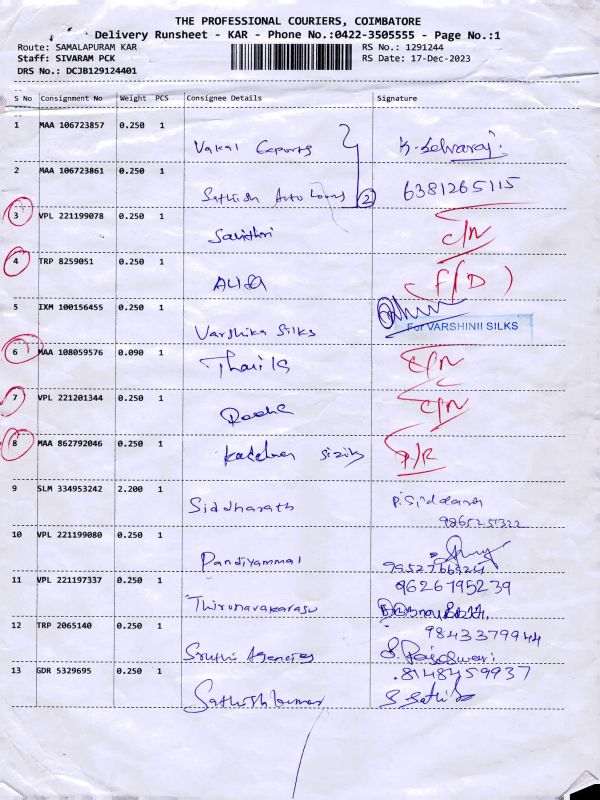 THE PROFESSIONAL COURIERS, COIMBATORE
Delivery Runsheet - KAR - Phone No.:0422-3505555 - Page No.:1
Route: SAMALAPURAM KAR RS No.: 1291244
Staff: SIVARAM PCK RS Date: 17-Dec-2023
DRS No.: DCJB129124401
S No Consignment No Weight PCS Consignee Details Signature
1 MAA 106723857 0.250 1
Vakal Exports K. Selvaraj.
2 MAA 106723861 0.250 1
Sathish Auto 2 6381265115
3 VPL 221199078 0.250 1
Savithri C/N
4 TRP 8259051 0.250 1
ALISA (F/D)
5 IXM 100156455 0.250 1
Varshika Silks For VARSHINII SILKS
6 MAA 108059576 0.090 1
C/N
7 VPL 221201344 0.250 1
Radha C/N
8 MAA 862792046 0.250 1
9 SLM 334953242 2.200 1
Siddharath
10 VPL 221199080 0.250 1
Pandiyammal
11 VPL 221197337 0.250 1
9626795239
Thirunavakarasu
12 TRP 2065140 0.250 1
9843379944
Sruthi Agencies S. Rajeswari
13 GDR 5329695 0.250 1
8148459937
Sathish kumar